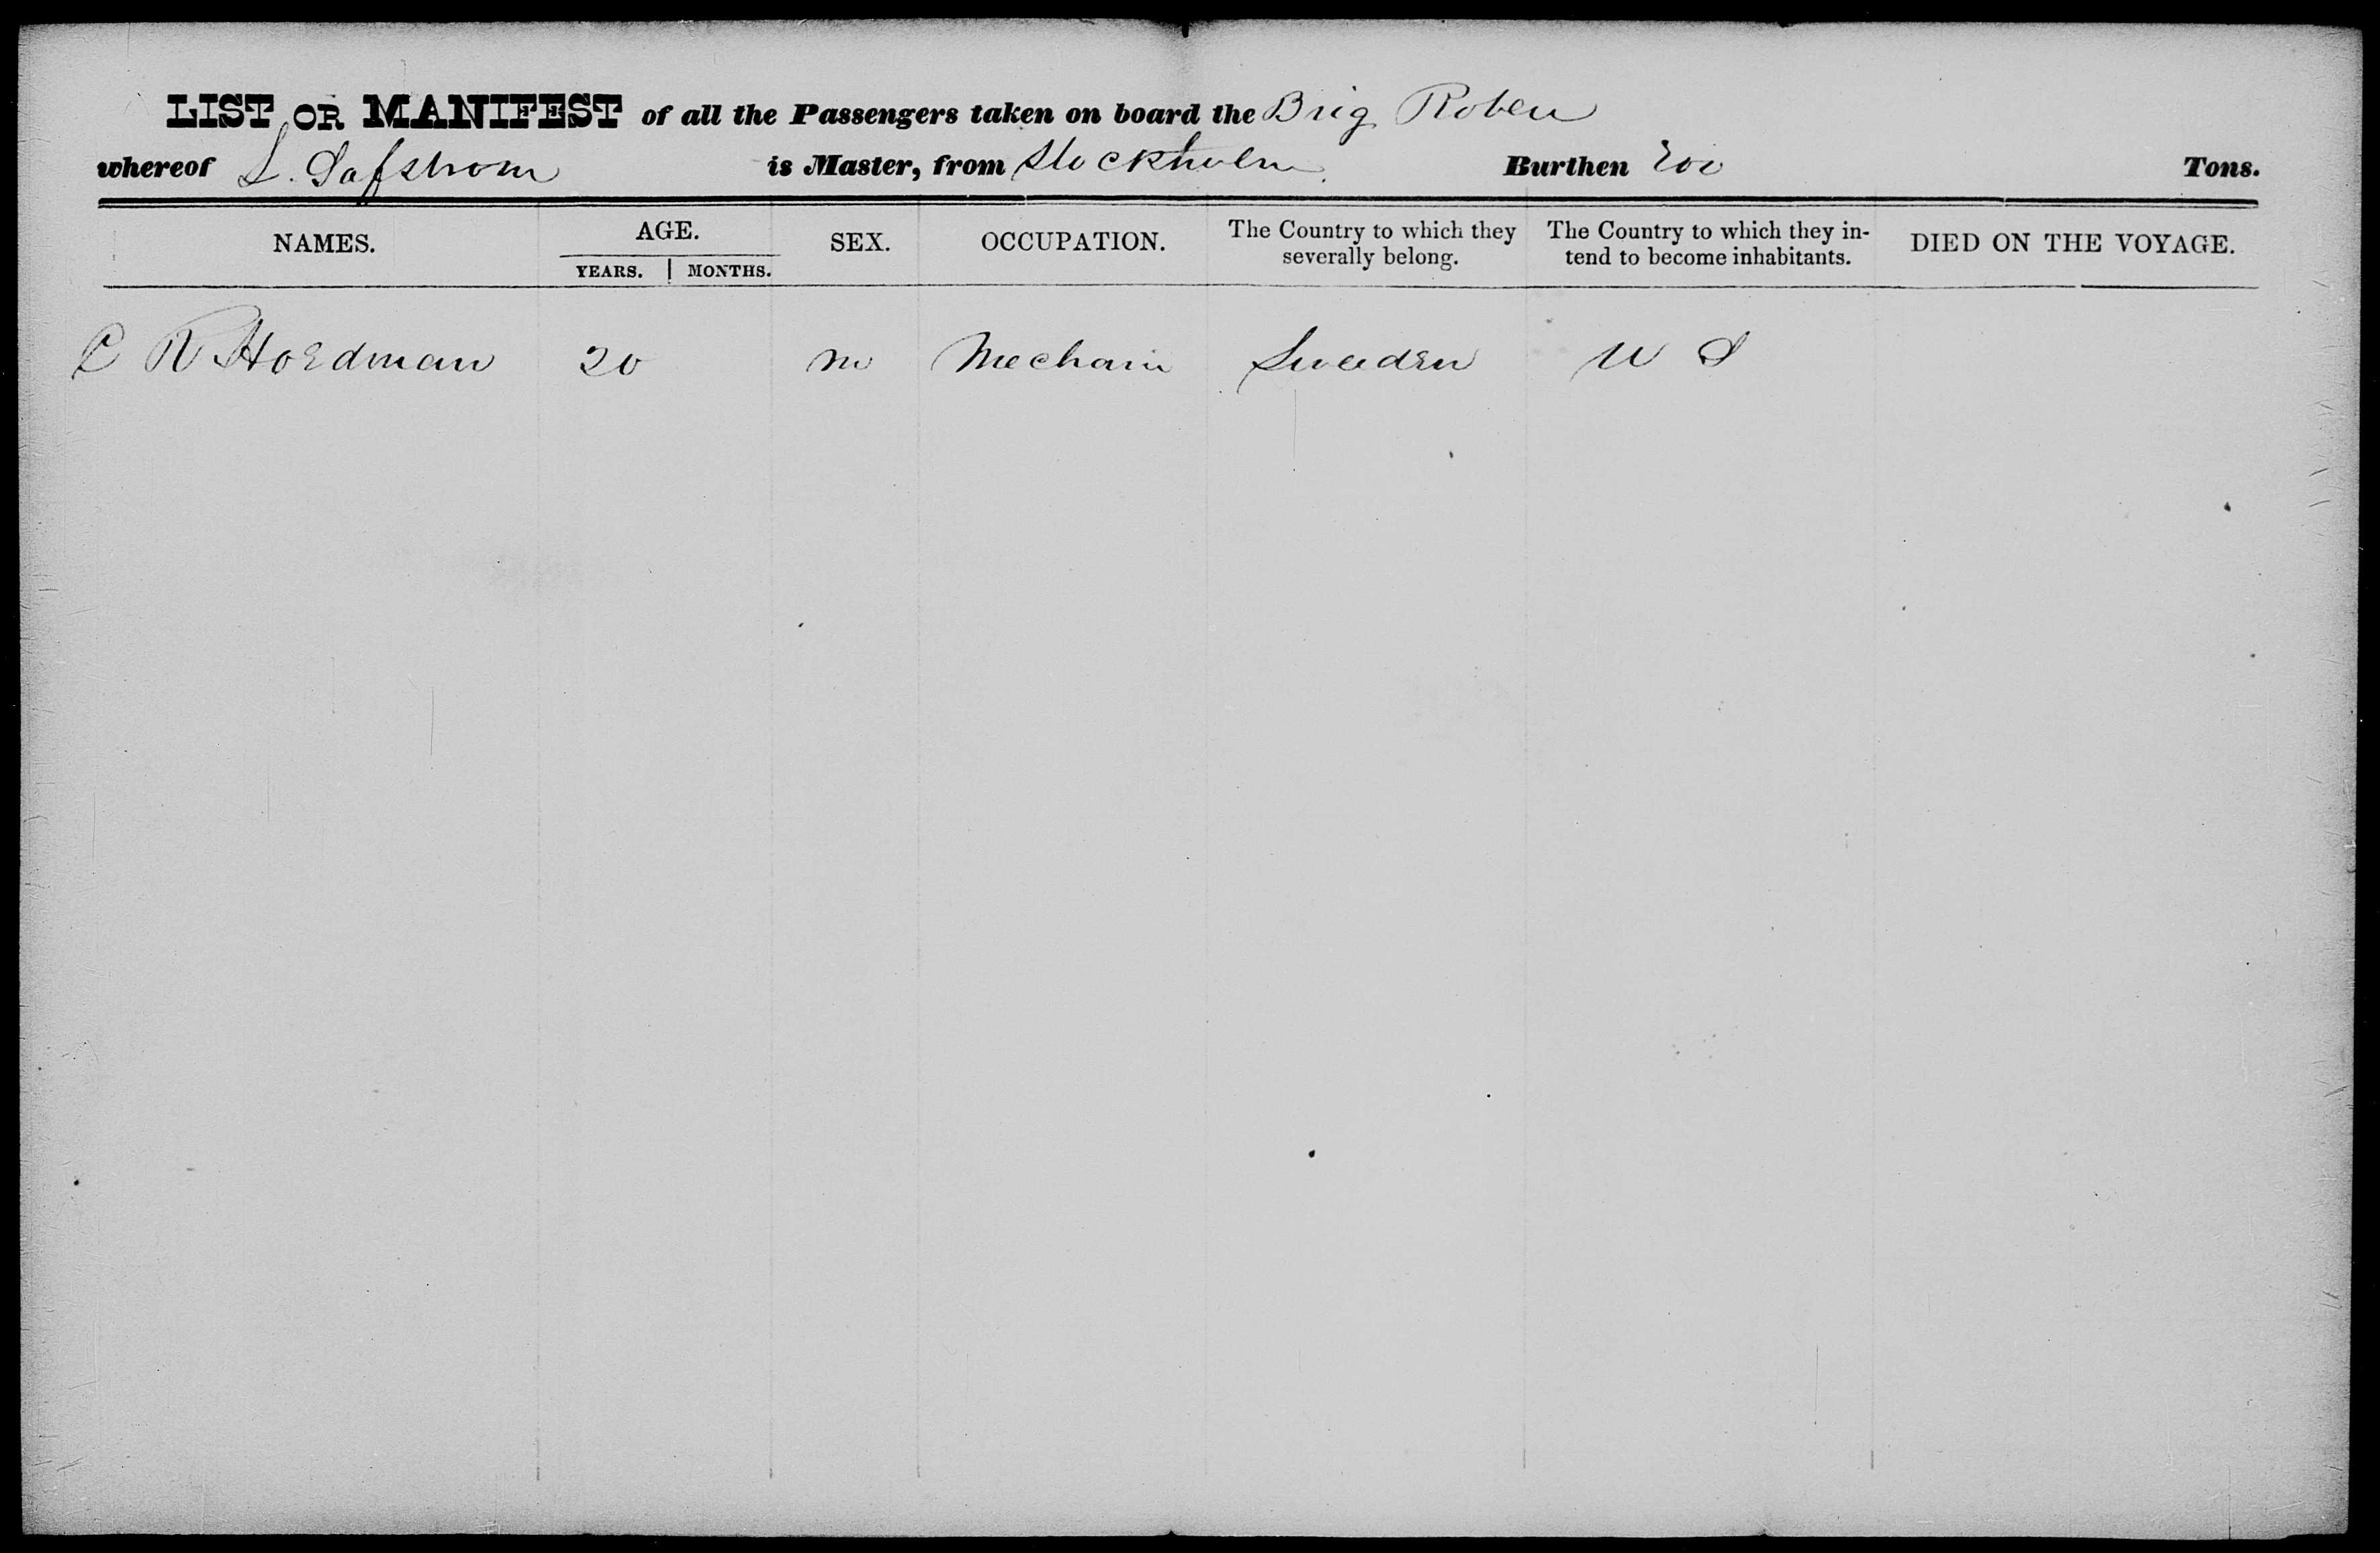 LIST OR MANIFEST of all the Passengers taken on board the Brig Roben
whereof L. Safstrom is Master, from Stockholm Burthen Tons.
NAMES. AGE. SEX. OCCUPATION. The Country to which they severally belong. The Country to which they intend to become inhabitants. DIED ON THE VOYAGE.
YEARS. MONTHS.
C R Hordman 20 m Mechani Sweden U S